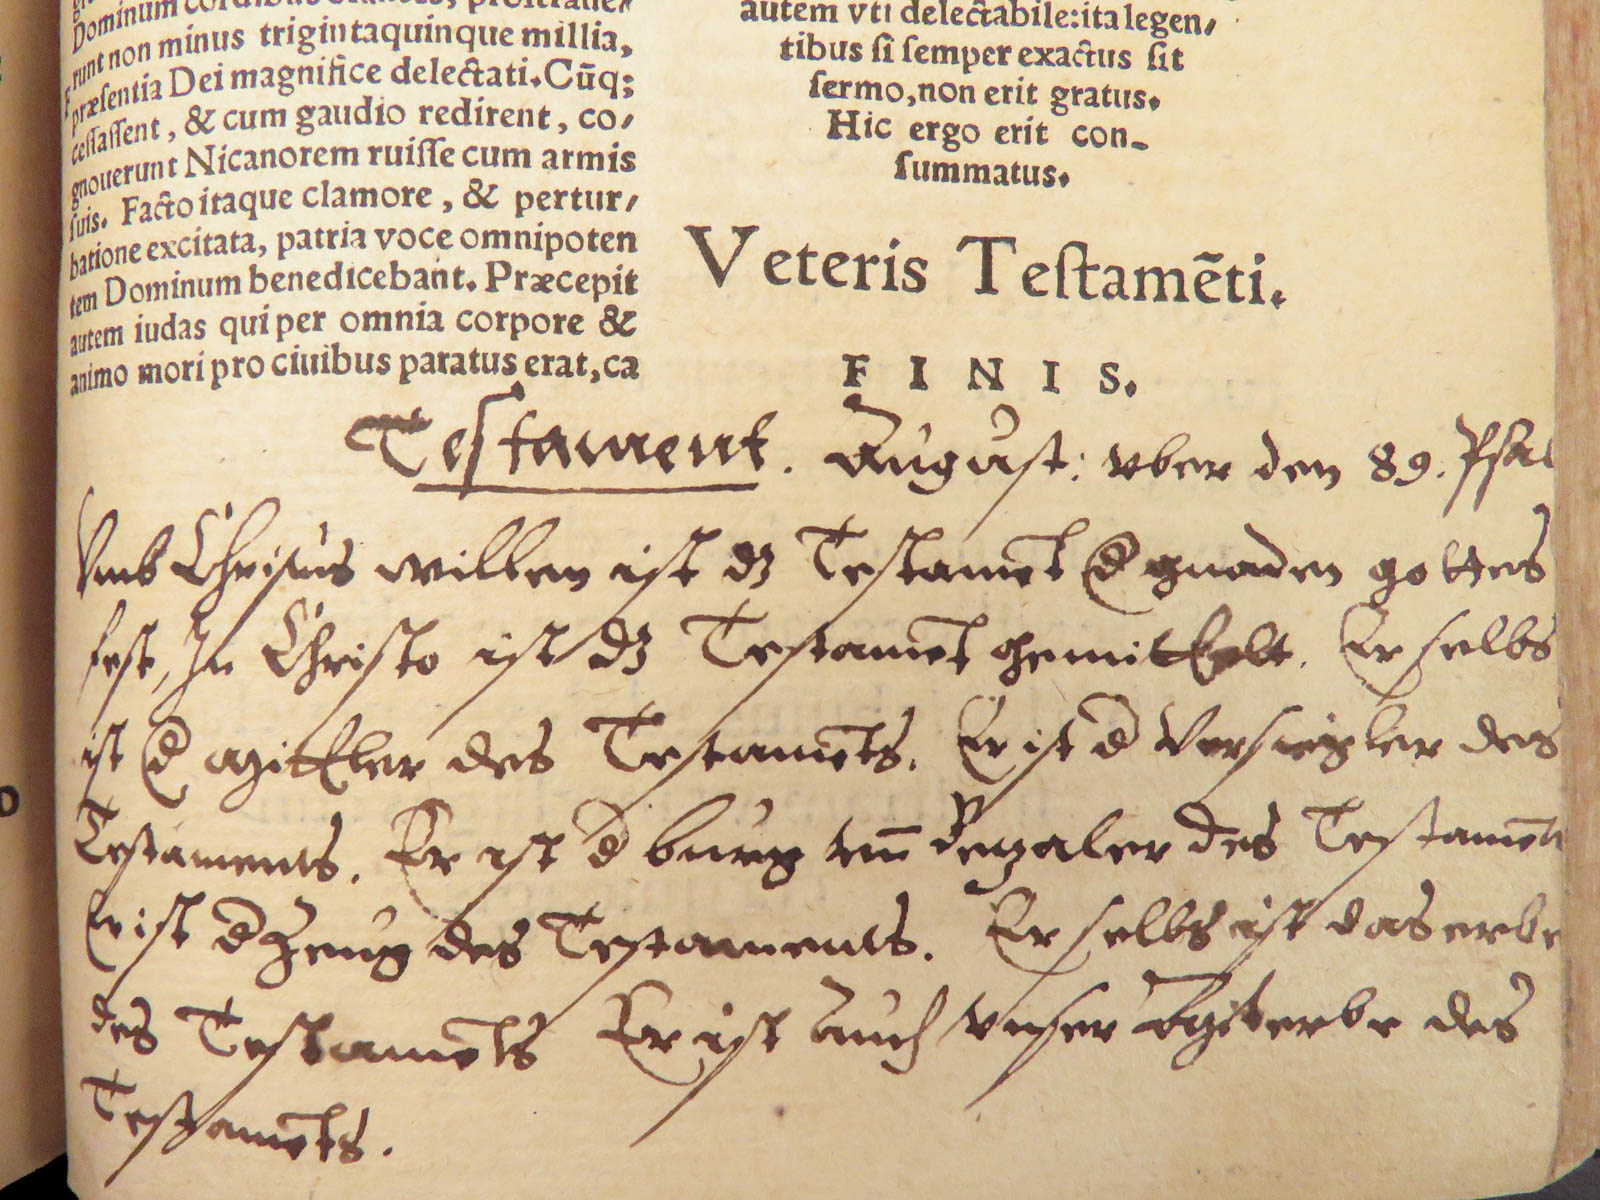 Dominum
runt non minus trigintaquinque millia,
præsentia Dei magnifice delectati. Cūq;
cessassent, & cum gaudio redirent, co/
gnouerunt Nicanorem ruisse cum armis
suis. Facto itaque clamore, & pertur/
batione excitata, patria voce omnipoten
tem Dominum benedicebant. Præcepit
autem iudas qui per omnia corpore &
animo mori pro ciuibus paratus erat, ca
autem vti delectabile: ita legen/
tibus si semper exactus sit
sermo, non erit gratus.
Hic ergo erit con-
summatus.
Veteris Testamēti.
F I N I S.
Testament. August: vber den 89. Psal
Vmb Christus willen ist dz Testamēt d gnaden gottes
fest, In Christo ist dz Testamēt gemittelt. Er selbs
ist d Mittler des Testamēts. Er ist d Versiegler des
Testaments. Er ist d burg vnn Bezaler des Testamēts
Er ist d Zeug des Testaments. Er selbs ist das erbe
des Testamēts Er ist Auch vnser Miterbe des
Testamēts.